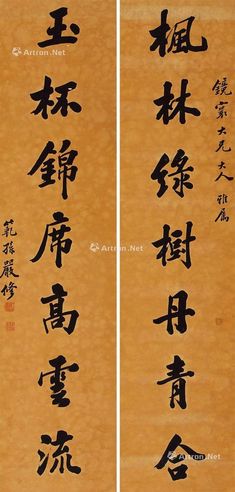 鏡大兄大人 雅屬
楓林綠樹丹青合
玉杯錦席高雲流
範孫嚴修
Artron.Net
Artron.Net
Artron.Net
Artron.Net
Artron.Net
Artron.Net